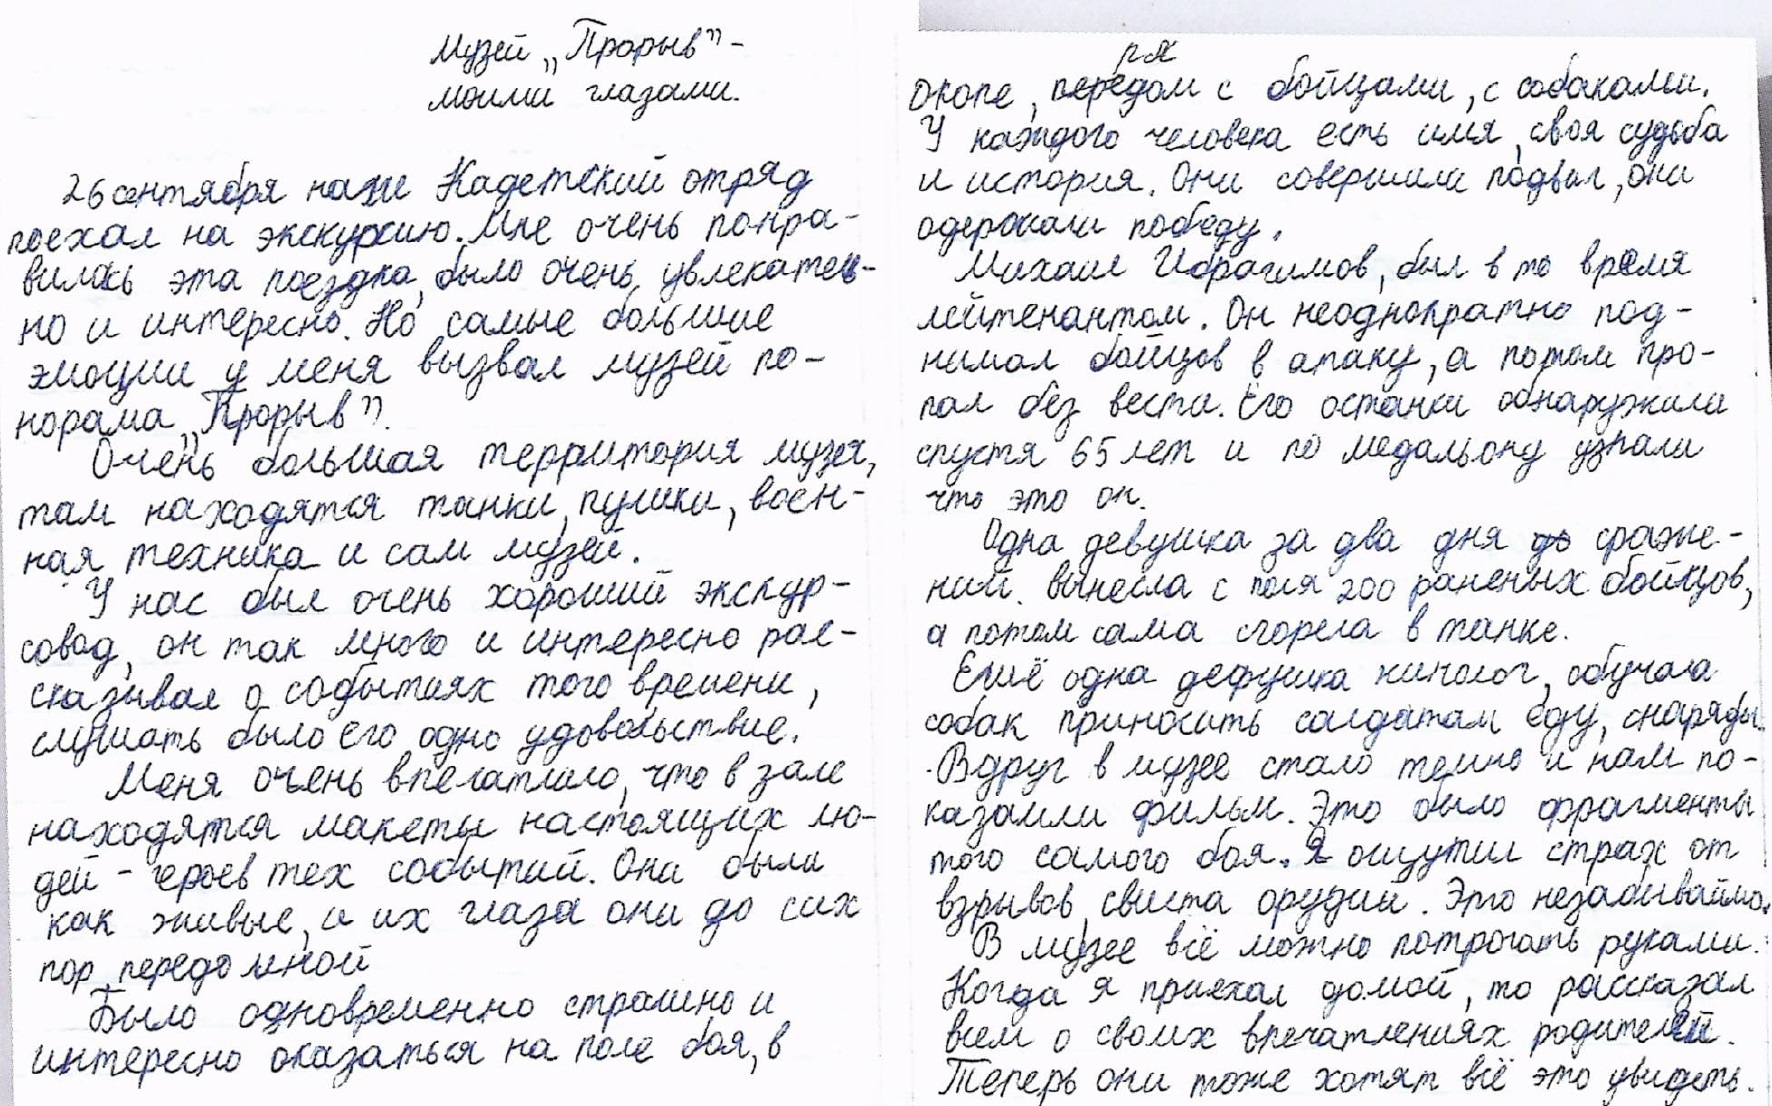 Музей „Прорыв" -
моими глазами.
26 сентября наш Кадетский отряд
поехал на экскурсию. Мне очень понра-
вилась эта поездка, было очень увлекател-
но и интересно. Но самые большие
эмоции у меня вызвал музей по-
норама „Прорыв".
Очень большая территория музея,
там находятся танки, пушки, воен-
ная техника и сам музей.
У нас был очень хороший экскур-
совод, он так много и интересно рас-
сказывал о событиях того времени,
слушать было его одно удовольствие.
Меня очень впечатлило, что в зале
находятся макеты настоящих лю-
дей - героев тех событий. Они были
как живые, и их глаза они до сих
пор передо мной
Было одновременно страшно и
интересно оказаться на поле боя, в
окопе, рядом с бойцами, с собаками.
У каждого человека есть имя, своя судьба
и история. Они совершили подвиг, они
одержали победу.
Михаил Ибрагимов, был в то время
лейтенантом. Он неоднократно под-
нимал бойцов в атаку, а потом про-
пал без вести. Его останки обнаружили
спустя 65 лет и по медальону узнали
что это он.
Одна девушка за два дня сраже-
ний вынесла с поля 200 раненых бойцов,
а потом сама сгорела в танке.
Ещё одна дефушка кинолог, обучала
собак приносить салдатам еду, снаряды.
Вдруг в музее стало темно и нам по-
казали фильм. Это было фрагменты
того самого боя. Я ощутил страх от
взрывов, свиста орудий. Это незабываймо.
В музее всё можно потрогать руками.
Когда я приехал домой, то рассказал
всем о своих впечатлениях родителей.
Теперь они тоже хотят всё это увидеть.